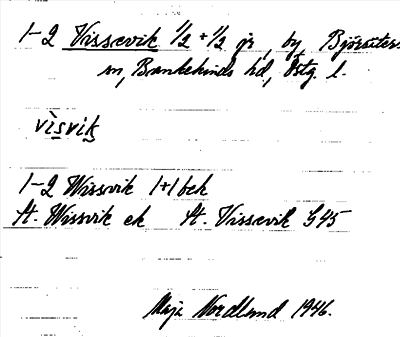 1-2 Vissevik 1/2 + 1/2 gr, by, Björsäters
sn, Bankekinds hd, Östg. l.
vìsvik
1-2 Wissvik 1+1 bek
St. Wissvik ek St. Vissevik G45
Maja Nordlund 1946.